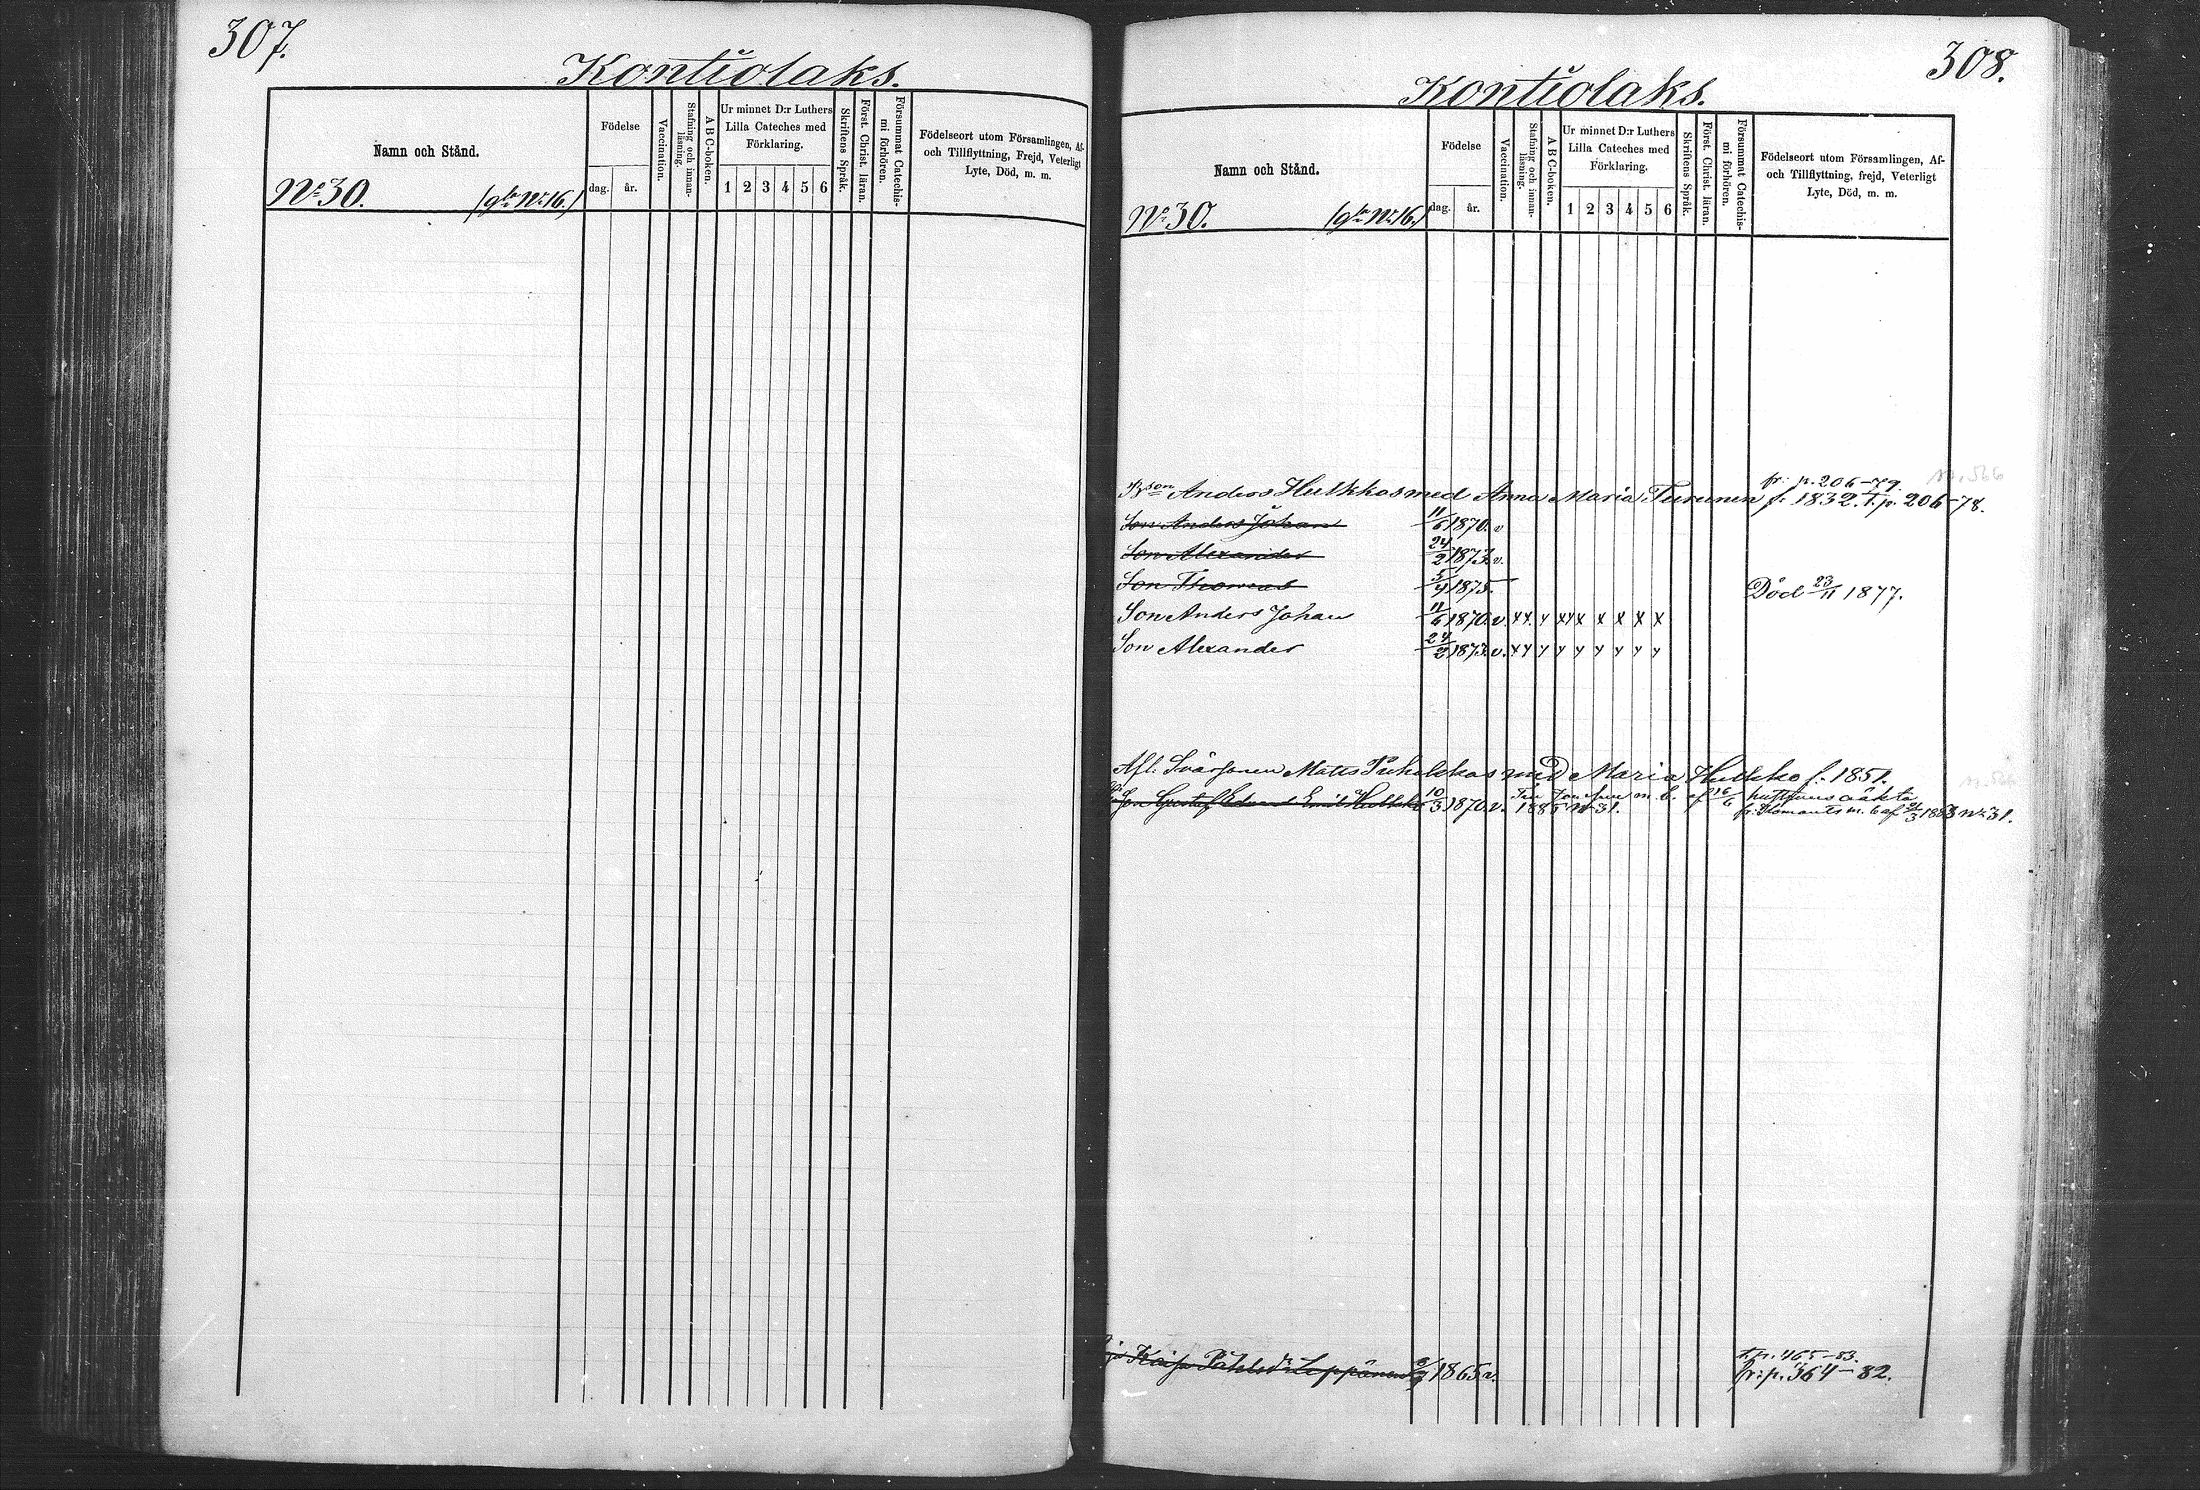 307.
Kontiolaks.
Namn och Stånd.
No 30. (gla No 16.)
Födelse
dag. år.
Vaccination.
Stafning och innanläsning.
A B C-boken.
Ur minnet D:r Luthers Lilla Cateches med Förklaring.
1 2 3 4 5 6
Skriftens Språk.
Först. Christ. läran.
Försummat Catechismi förhören.
Födelseort utom Församlingen, Af-
och Tillflyttning, Frejd, Veterligt
Lyte, Död, m. m.
308.
Kontiolaks.
Namn och Stånd.
No 30. (gla No 16.)
Födelse
dag. år.
Vaccination.
Stafning och innanläsning.
A B C-boken.
Ur minnet D:r Luthers Lilla Cateches med Förklaring.
1 2 3 4 5 6
Skriftens Språk.
Först. Christ. läran.
Försummat Catechismi förhören.
Födelseort utom Församlingen, Af-
och Tillflyttning, frejd, Veterligt
Lyte, Död, m. m.
fr. p. 206-79.
Bson Anders Hulkkos med Anna Maria Turunen f. 1832. T. p. 206-78.
Son Anders Johan 11/6 1870. v
Son Alexander 24/2 1873. v.
Son Thomas 5/4 1875. Död 23/11 1877.
Son Anders Johan 11/6 1870. v. xx x xxx x x x x
Son Alexander 24/2 1873. v. xx x x x x x x x
Afl. Svärsonen Matts Puhakkas med Maria Hulkko f. 1851.
Son Gustaf Edvard Emil Hulkko 10/3 1870. v. Till m. b. af 16/6 1885 No 31.
fr. Ilomants m. b. af 21/3 1883 No 31.
t. p. 465-83.
Kaisa Påhlsdr Leppänen 1865 v. fr: p. 364-82.